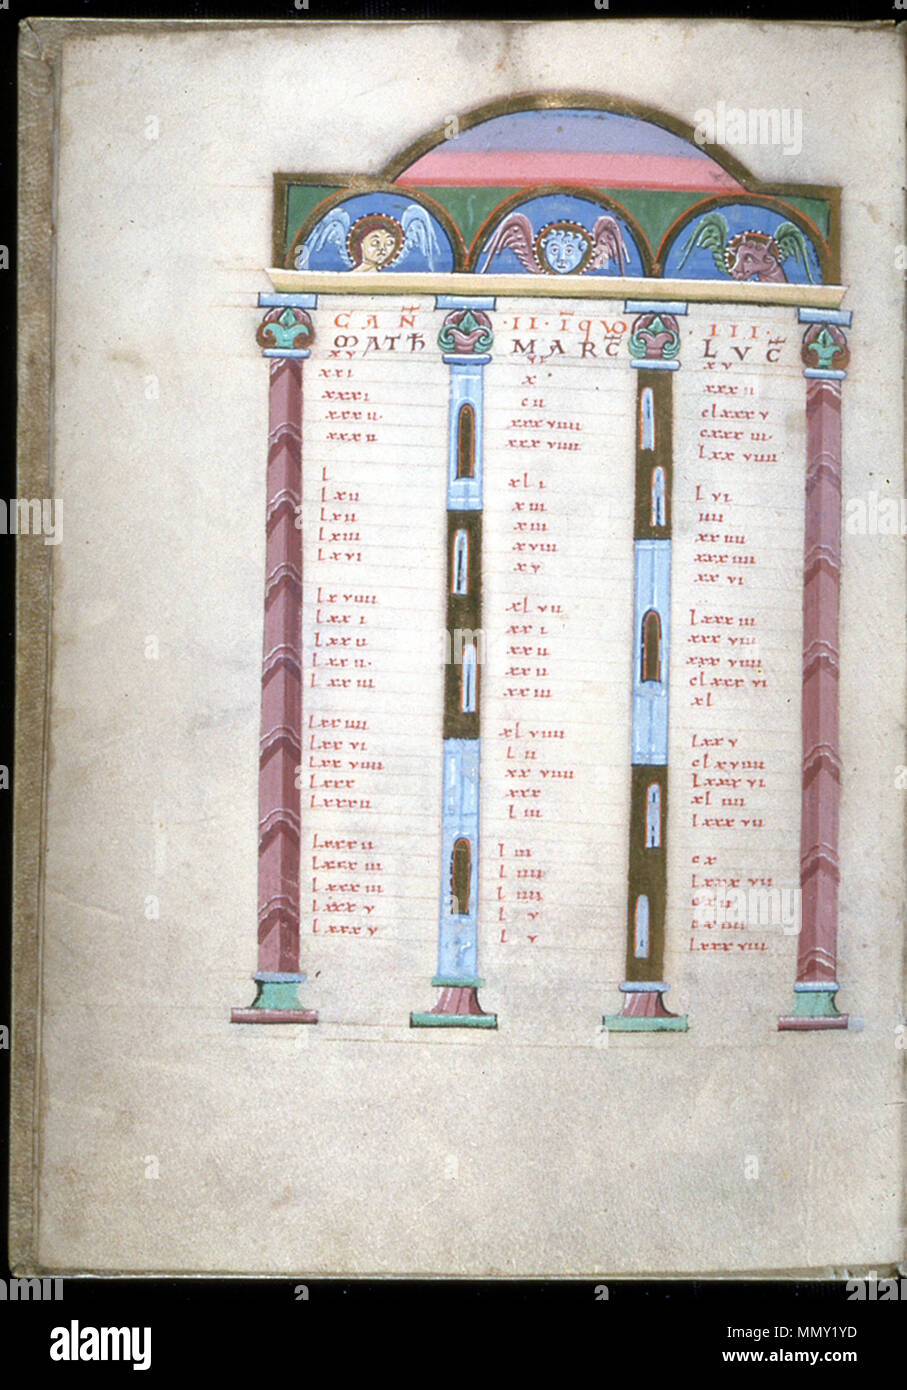 CAÑ · II · ĪQVO · III ·
MATH MARC LVC
xv vi xv
xxi x xxxii
xxxi cii clxxxv
xxxii xxxviiii cxxxiii
xxxii xxxviiii lxxviiii
l xli lvi
lxii xiii iiii
lxii xiii xxiiii
lxiii xviii xxxiiii
lxvi xv xxvi
lxviiii xlvii lxxxiii
lxxi xxi xxxviii
lxxii xxii xxxviiii
lxxii xxii clxxxvi
lxxiii xxiii xl
lxxiiii xlviiii lxxv
lxxvi lii clxviiii
lxxviiii xxviiii lxxxvi
lxxx xxx xliiii
lxxxii liii lxxxvii
lxxxii liii cx
lxxxiii liiii lxxxvii
lxxxiii liiii cxii
lxxxv lv cxiiii
lxxxv lv lxxxviiii
alamy
MMY1YD
www.alamy.com